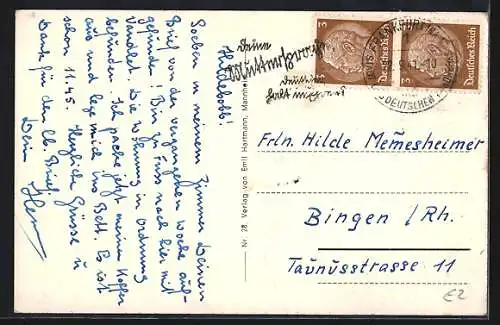 Hildebobb!
Soeben in meinem Zimmer Deinen
Brief von der vergangenen Woche auf-
gefunden! Bin zu Fuss nach hier mit
Die Wohnung in Ordnung
befunden. Ich packe jetzt meinen Koffer
aus und lege mich ins Bett. Es ist
schon 11.45. Herzliche Grüsse u
Dank für den lb. Brief.
Dein
Nr. 28. Verlag von Emil Hartmann, Mannheim
Deine
Muttersprache
Deutscher
3 Deutsches Reich
3 Deutsches Reich
Frln. Hilde Memesheimer
Bingen / Rh.
Taunusstrasse 11
€2